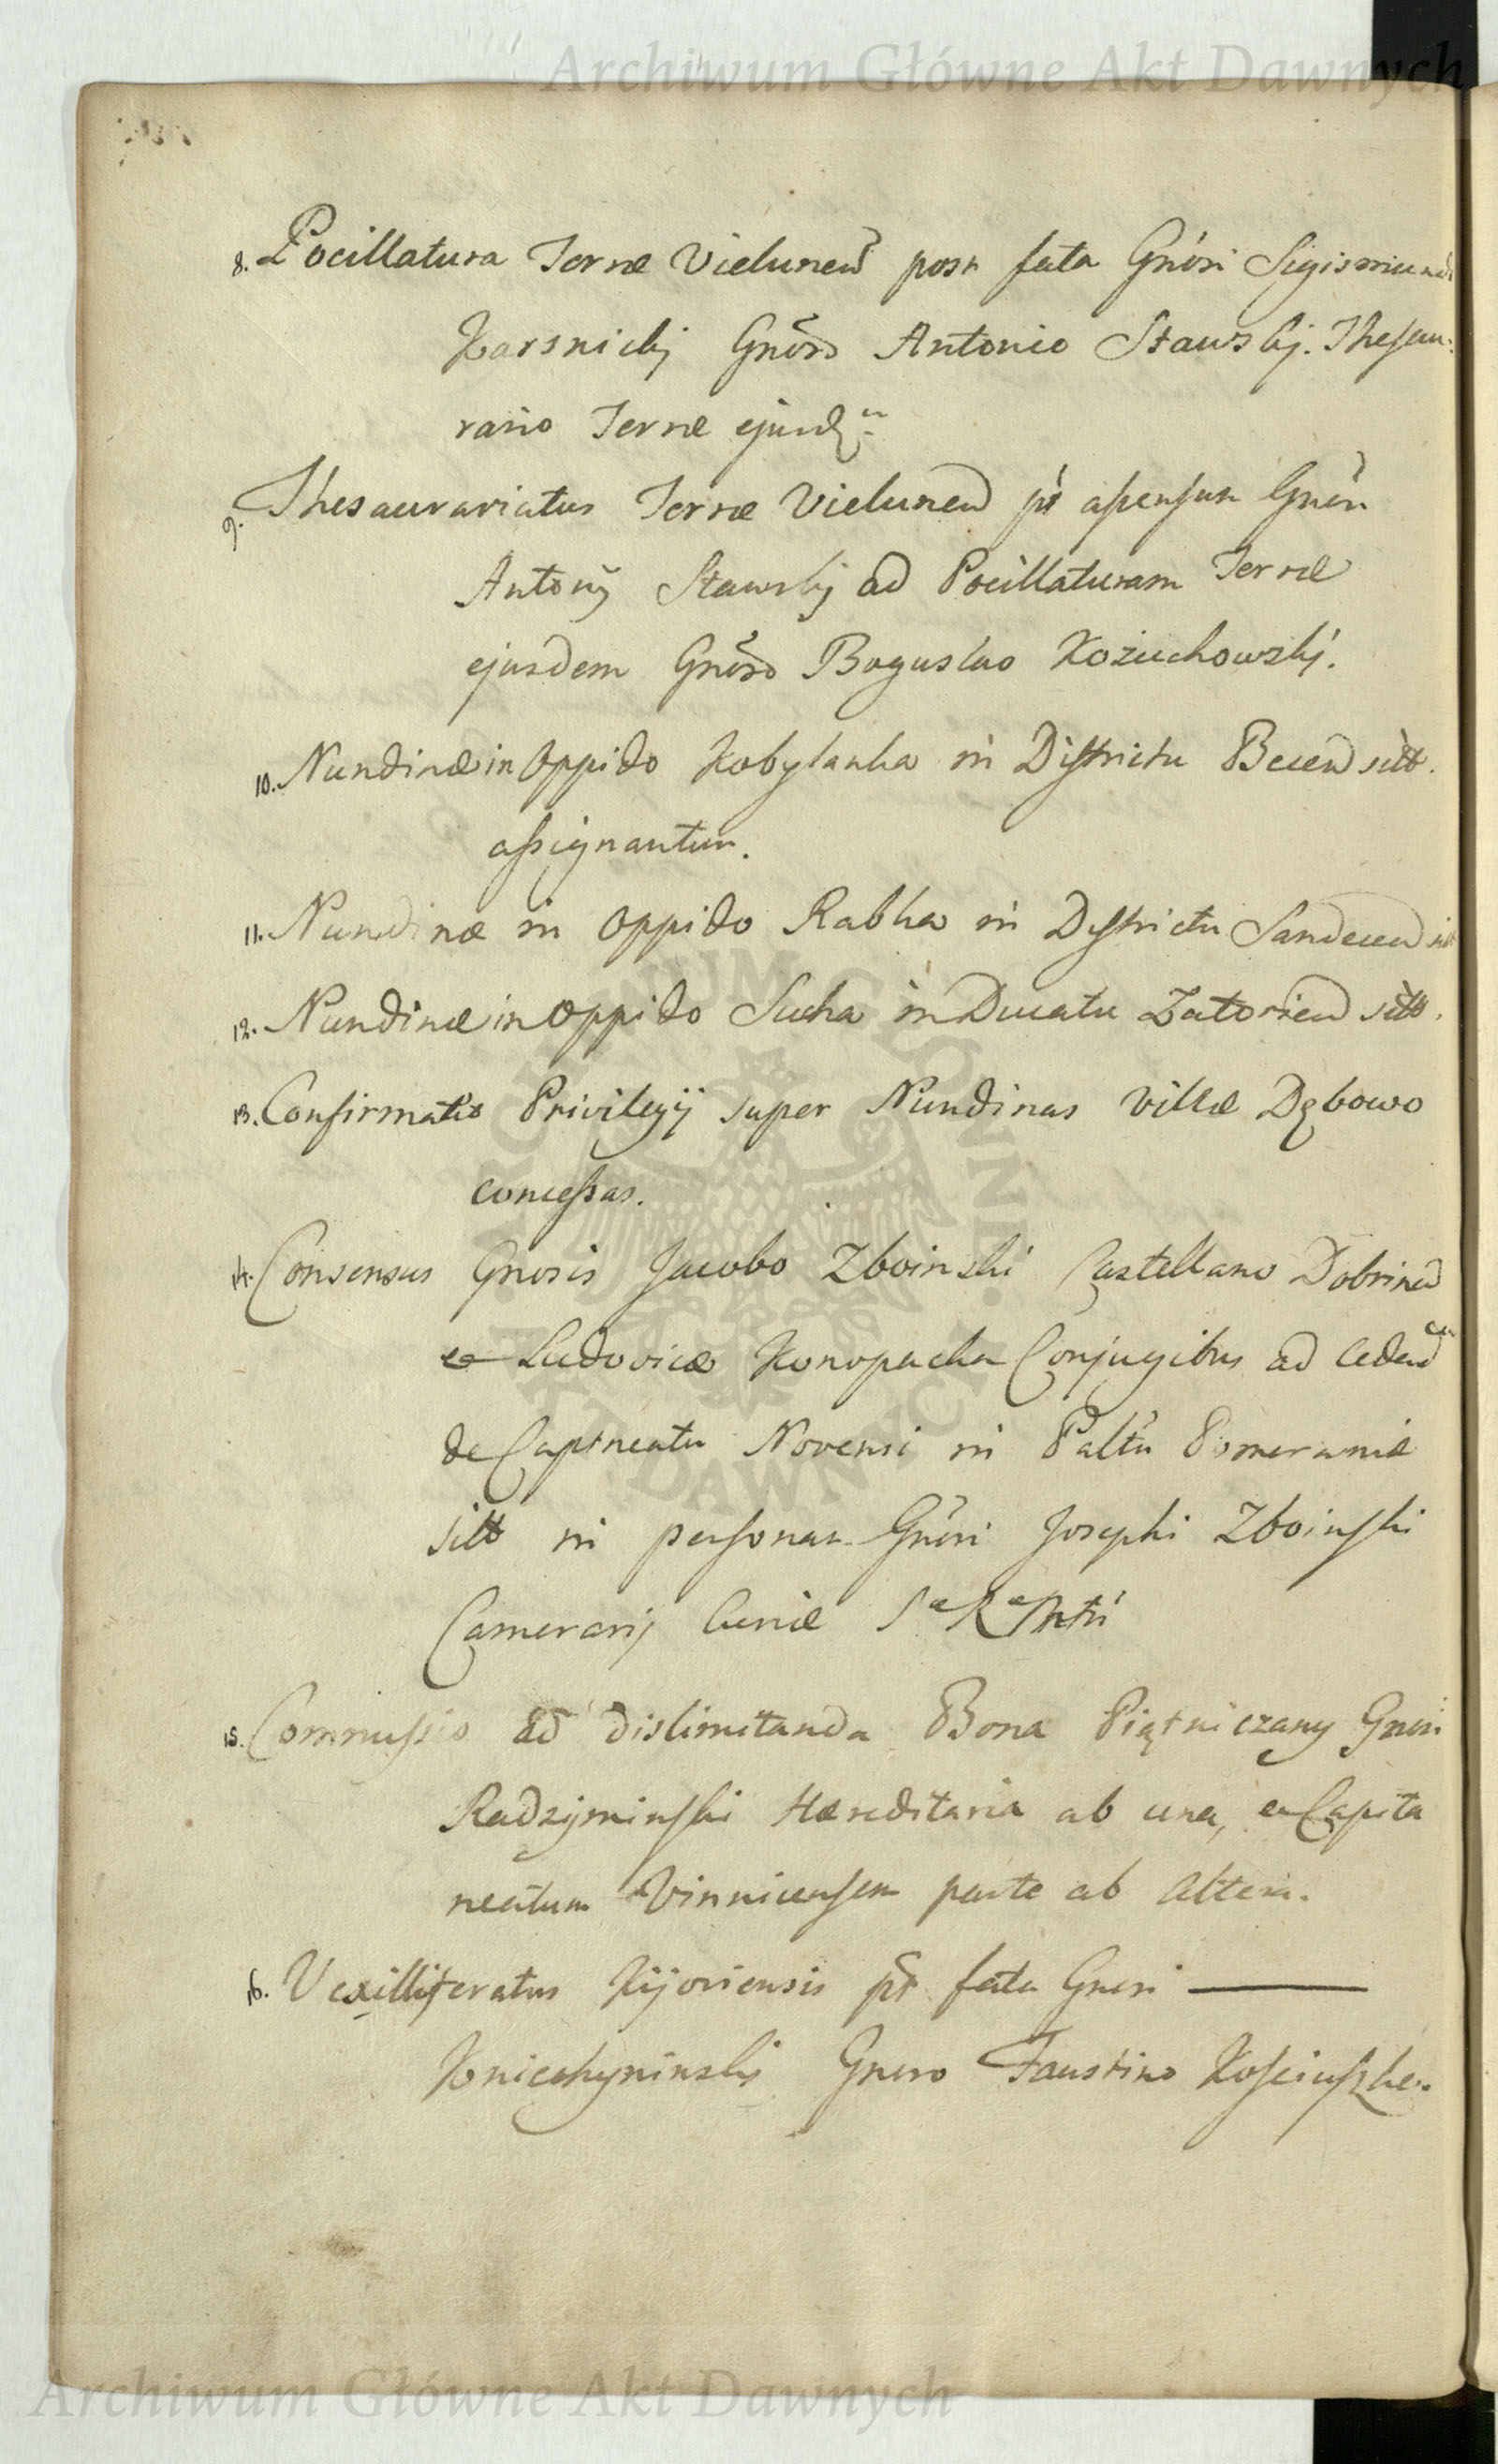 Archiwum Główne Akt Dawnych
8. Pocillatura Terræ Vielunen̄ post fata Gnōsi Sigismundi
Karsnickij Gnōso Antonio Stawskij. Thesau:
rario Terræ ejusd
9. Thesaurariatus Terræ Vielunen pt ascensum Gnōsi
Antonij Stawskij ad Pocillaturam Terræ
ejusdem Gnōso Boguslao Kożuchowskij.
10. Nundinæ in Oppido Kobylanka in Districtu Becen sitt.
assignantur.
11. Nundinæ in Oppido Rabka in Districtu Sandecen sitt
12. Nundinæ in Oppido Sucha in Ducatu Zatorien sitt.
13. Confirmatio Privilegij super Nundinas villæ Dębowo
concessas.
14. Consensus Gnosis Jacobo Zboinski Castellano Dobrinen
et Ludovicæ Konopacka Conjugibus ad cedend
de Capitneatu Novensi in Paltu Pomeraniæ
sitt in personam Gnōsi Josephi Zboinski
Camerarij Curiæ
15. Commissio ad dislimitanda Bona Piątniczany Gnosi
Radzyminski Hæreditaria ab una, et Capita
neatum Vinnicensem parte ab altera.
16. Vexilliferatus Kijoviensis pt fata Gnosi ———
Gnoso Faustino Kosciuszko.
ARCHIWUM GŁÓWNE AKT DAWNYCH
Archiwum Główne Akt Dawnych